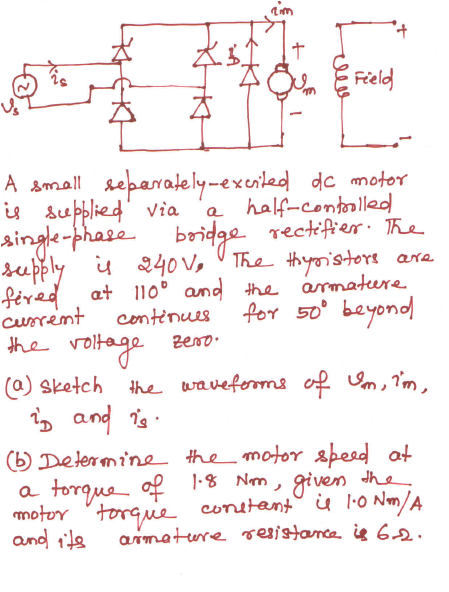 im
+
is
iD
Vm
Field
Vs
-
-
A small separately-excited dc motor
is supplied via a half-controlled
single-phase bridge rectifier. The
supply is 240 V. The thyristors are
fired at 110° and the armature
current continues for 50° beyond
the voltage zero.
(a) Sketch the waveforms of Vm, im,
iD and is.
(b) Determine the motor speed at
a torque of 1.8 Nm, given the
motor torque constant is 1.0 Nm/A
and its armature resistance is 6Ω.